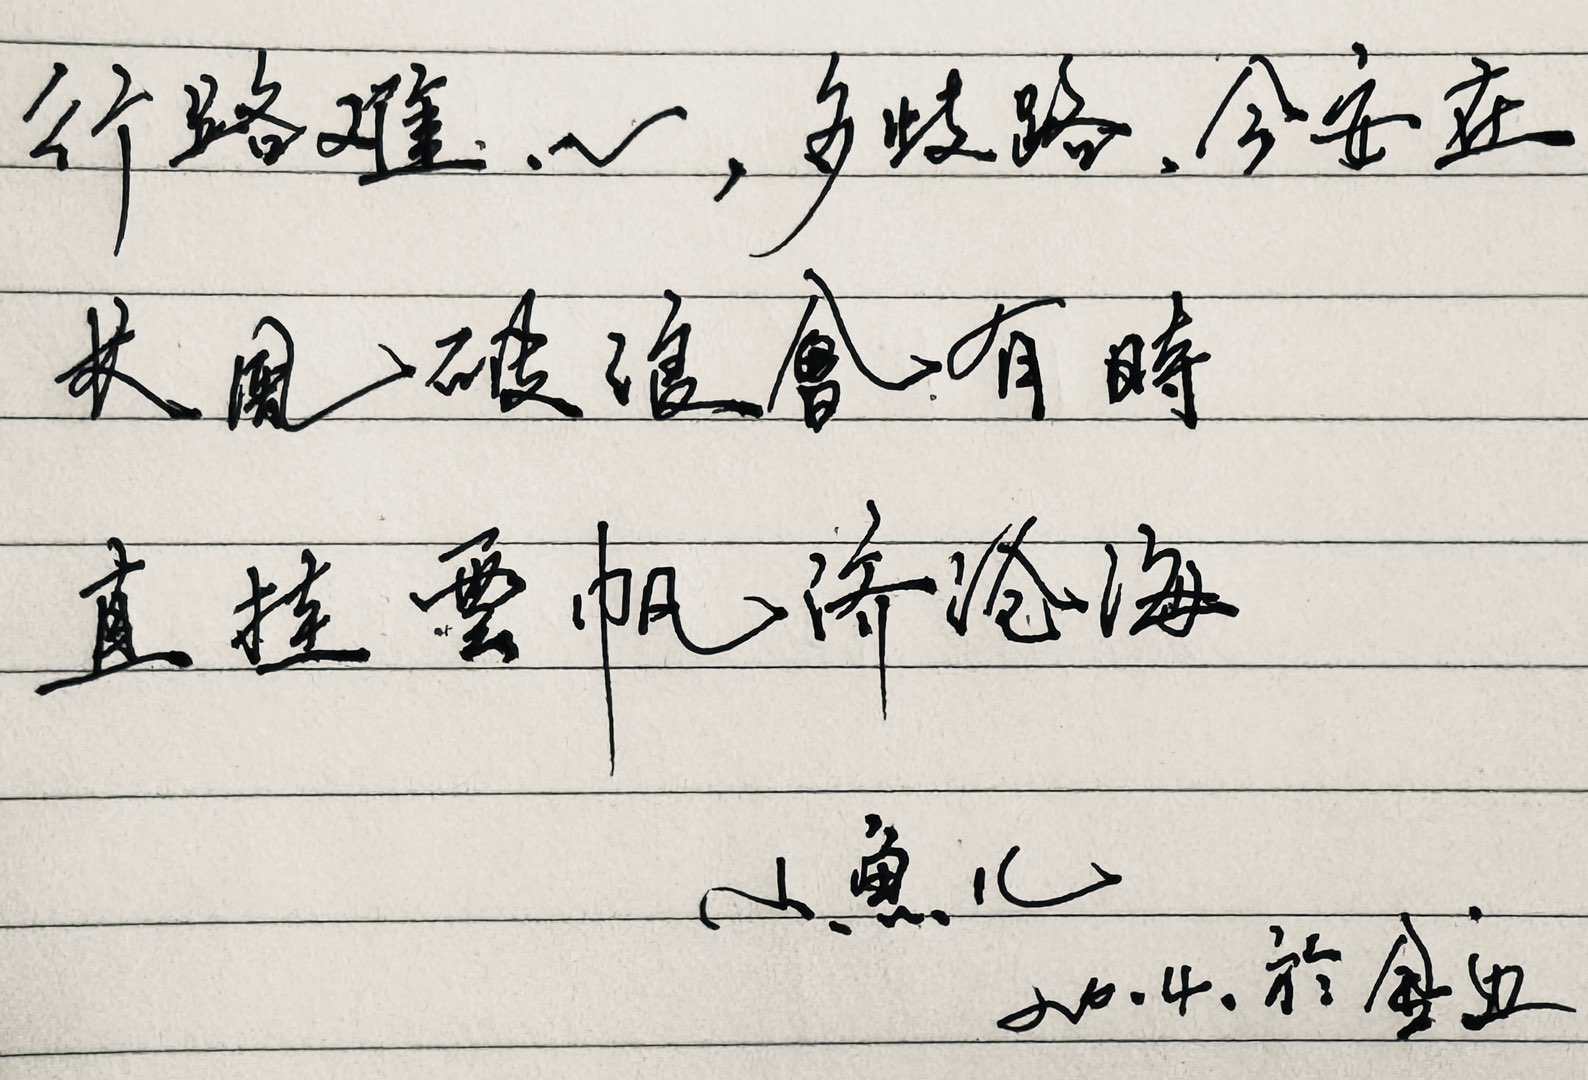 行路难.、～，多歧路、今安在
长風破浪會有時
直挂雲帆济沧海
小魚儿
20.4.於金